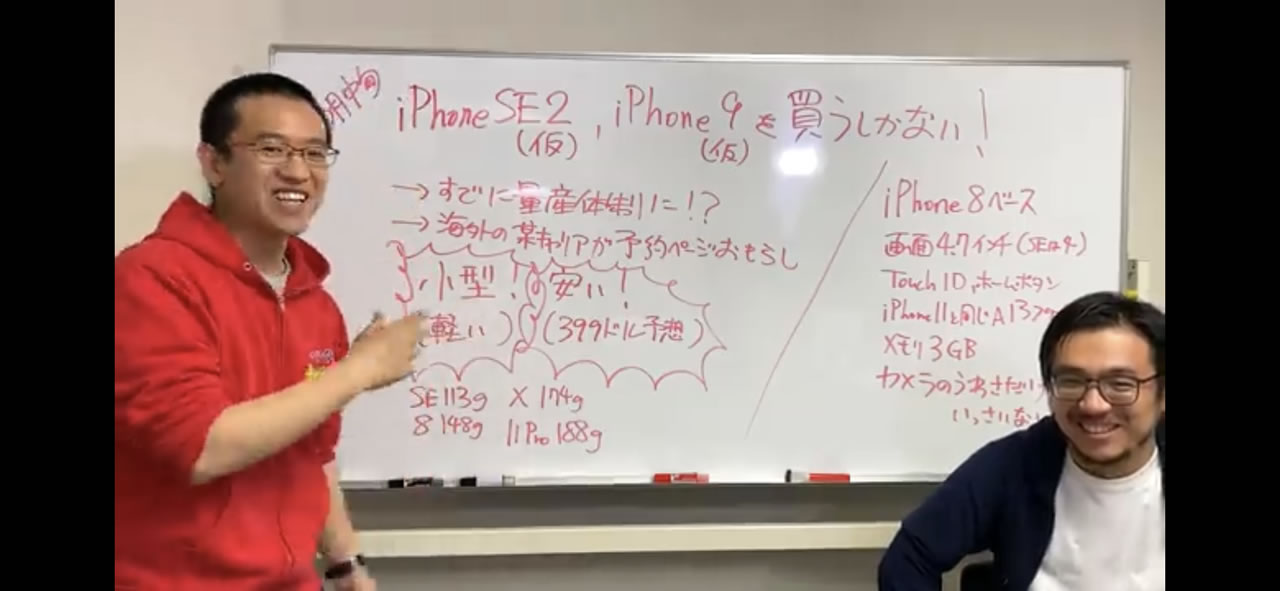 月中旬
iPhone SE2, iPhone 9を買うしかない!
(仮) (仮)
→すでに量産体制に!?
→海外の某キャリアが予約ページおもらし
小型! 安い!
(軽い) (399ドル予想)
SE 113g X 174g
8 148g 11Pro 188g
iPhone 8ベース
画面4.7インチ(SEは4)
Touch ID,ホームボタン
iPhone11と同じA13
メモリ3GB
カメラのうきさだけ
いっさいな